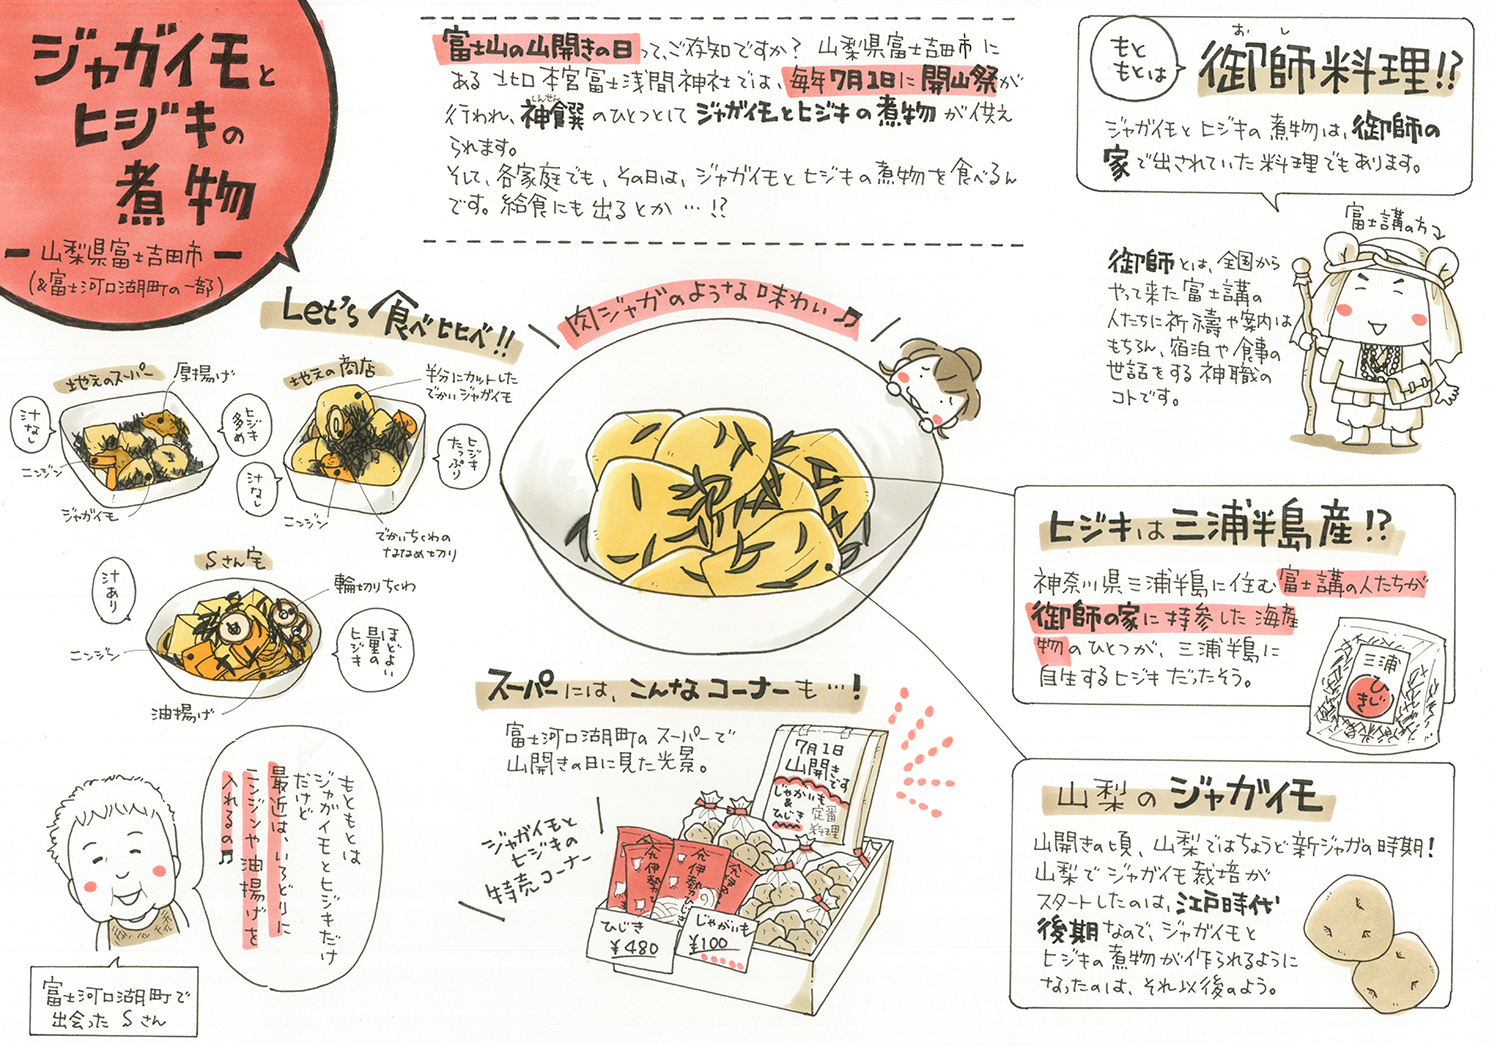 ジャガイモと
ヒジキの
煮物
山梨県富士吉田市
(&富士河口湖町の一部)
富士山の山開きの日って、ご存知ですか？ 山梨県富士吉田市に
ある 北口本宮冨士浅間神社では、毎年7月1日に開山祭が
行われ、神饌のひとつとして ジャガイモとヒジキの煮物 が供え
しんせん
られます。
そして、各家庭でも、その日は、ジャガイモとヒジキの煮物を食べるん
です。給食にも出るとか…!?
もと
もとは
おし
御師料理!?
ジャガイモとヒジキの煮物は、御師の
家で出されていた料理でもあります。
富士講の方
御師とは、全国から
やって来た富士講の
人たちに祈禱や案内は
もちろん、宿泊や食事の
世話をする神職の
コトです。
Let's 食べ比べ!!
地元のスーパー
厚揚げ
汁なし
ヒジキ
多め
ニンジン
ジャガイモ
地元の商店
半分にカットした
でかいジャガイモ
ヒジキ
たっぷり
汁なし
ニンジン
でかいちくわの
ななめ切り
Sさん宅
汁あり
輪切りちくわ
ほどよい
量の
ヒジキ
ニンジン
油揚げ
肉ジャガのような味わい♪
ヒジキは三浦半島産!?
神奈川県三浦半島に住む富士講の人たちが
御師の家に持参した海産
物のひとつが、三浦半島に
自生するヒジキだったそう。
三浦
ひじき
山梨のジャガイモ
山開きの頃、山梨ではちょうど新ジャガの時期！
山梨でジャガイモ栽培が
スタートしたのは、江戸時代
後期なので、ジャガイモと
ヒジキの煮物が作られるように
なったのは、それ以後のよう。
スーパーには、こんなコーナーも…！
富士河口湖町のスーパーで
山開きの日に見た光景。
ジャガイモと
ヒジキの
特売コーナー
7月1日
山開きです
じゃがいも
&
ひじき
定番
料理
伊勢ひじき
ひじき
¥480
じゃがいも
¥100
もともとは
ジャガイモとヒジキだけ
だけど
最近は、いろどりに
ニンジンや油揚げを
入れるの♫
富士河口湖町で
出会ったSさん